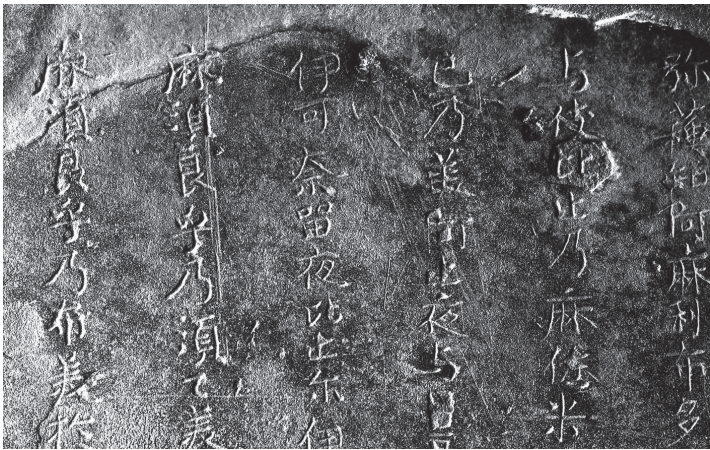 弥蘓知阿麻利布多
与伎比止乃麻佐米
己乃美阿止夜与呂
伊可奈留夜比止尓伊
麻須良乎乃須々美
麻須良乎乃布美於